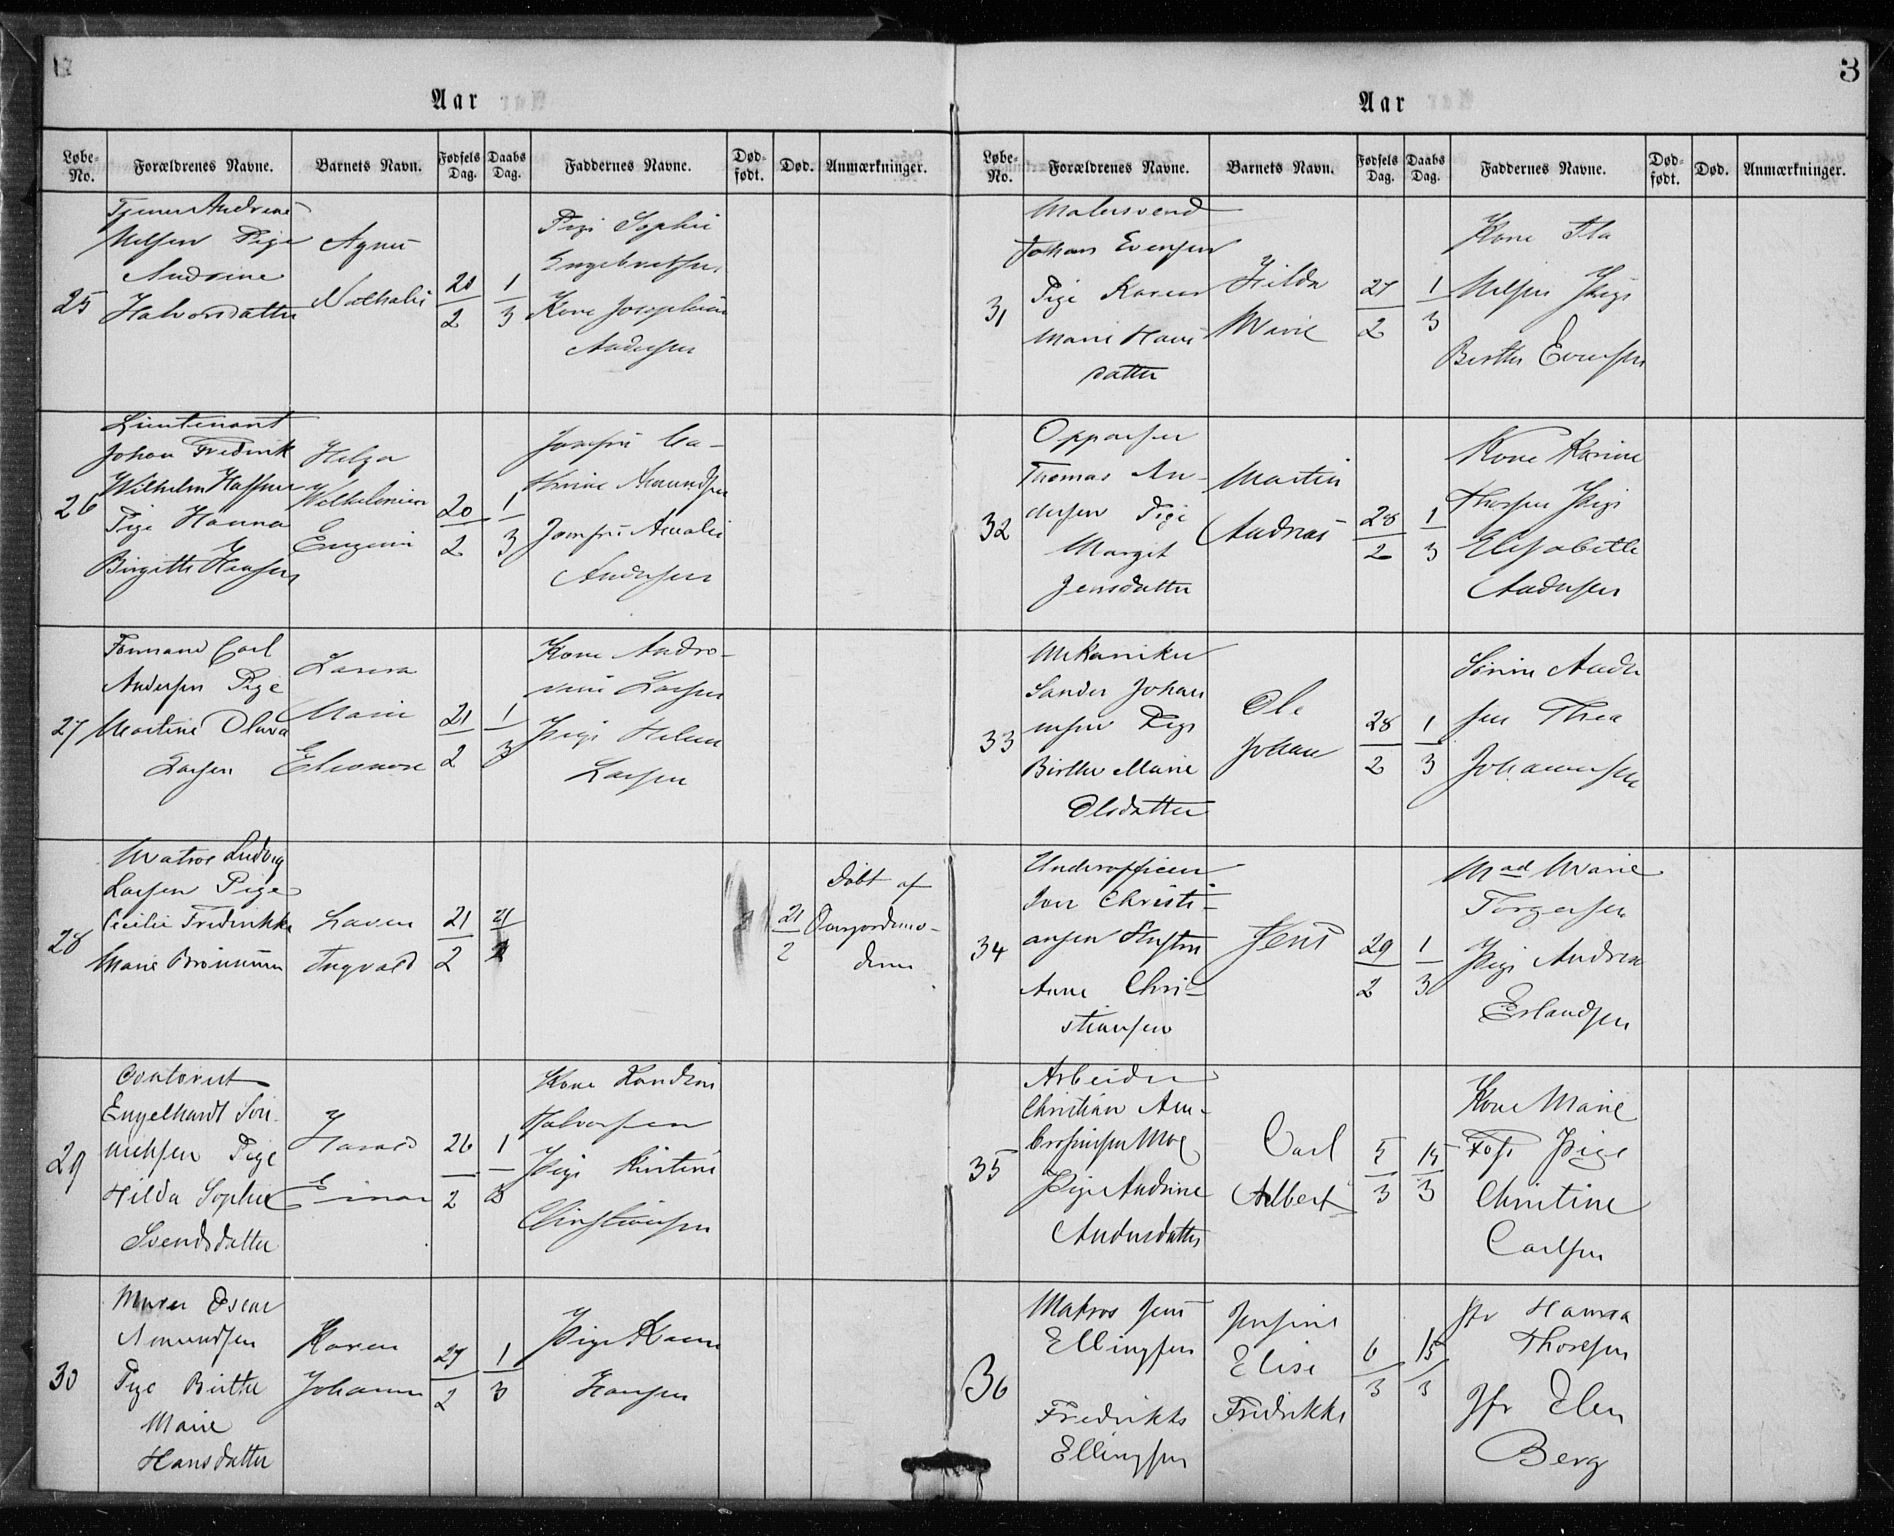 Aar
Løbe-No. Forældrenes Navne. Barnets Navn. Fødsels Dag. Daabs Dag. Faddernes Navne. Død-født. Død. Anmærkninger.
25
Andreas
Nielsen Pige
Andrine
Halvorsdatter
Agnes
Nathalie
20/2
1/3
Pige Sophie
Engebretsen
Kone Josephine
Andersen
26
Lieutenant
Johan Fredrik
Wilhelm Haffner
Pige Hanna
Birgitte Hansen
Helga
Wilhelmine
Eugenie
20/2
1/3
Jomfru Ca-
thrine Amundsen
Jomfru Amalie
Andersen
27
Formand Carl
Andersen Pige
Martine Olava
Larsen
Laura
Marie
Eleonore
21/2
1/3
Kone Andro-
vine Larsen
Pige Helene
Larsen
28
Matros Ludvig
Larsen Pige
Cecilie Fredrikke
Marie
Laurn
Ingvald
21/2
21/2
21/2
Døbt af
Overjordemo-
deren
29
Contorist
Engelhardt Søn-
nichsen Pige
Hilda Sophie
Svendsdatter
Harald
Einar
26/2
1/3
Kone Randine
Halvorsen
Pige Kirstine
Christiansen
30
Murer Oscar
Amundsen
Pige Birthe
Marie
Hansdatter
Karen
Johanne
27/2
1/3
Pige Karen
Hansen
3
Aar
Løbe-No. Forældrenes Navne. Barnets Navn. Fødsels Dag. Daabs Dag. Faddernes Navne. Død-født. Død. Anmærkninger.
31
Malersvend
Johan Evensen
Pige Karen
Marie Hans
datter
Hilda
Marie
27/2
1/3
Kone Ida
Nilsen Pige
Berthe Evensen
32
Oppasser
Thomas An-
dersen Pige
Margit
Jensdatter
Martin
Andreas
28/2
1/3
Kone Karine
Thorsen Pige
Elisabeth
Andersen
33
Mekaniker
Sander Johan
nesen Pige
Birthe Marie
Olsdatter
Ole
Johan
28/2
1/3
Sørine Ander
sen Thea
Johannessen
34
Underofficer
Iver Christi-
ansen Hustru
Anne Chri-
stiansen
Jens
29/2
1/3
Mad Marie
Torgersen
Pige Andrea
Erlandsen
35
Arbeider
Christian Am-
brosiusen Moe
Pige Andrine
Andersdatter
Carl
Albert
5/3
15/3
Kone Marie
Foss Pige
Christine
Carlsen
36
Matros Jens
Ellingsen
Fredrikke
Ellingsen
Jensine
Elise
Fredrikke
6/3
15/3
Jfr Hanna
Thoresen
Jfr Elen
Berg